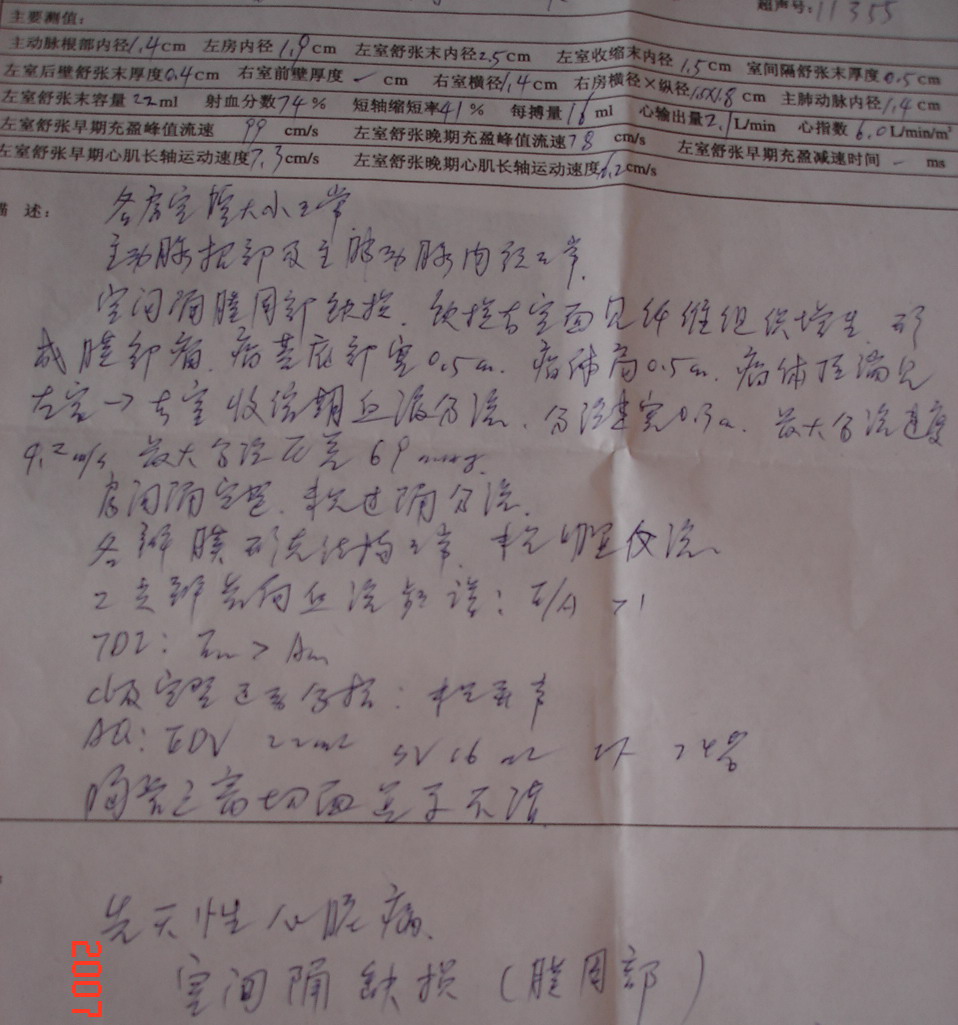 超声号:11355
主要测值:
主动脉根部内径1.4cm 左房内径1.9cm 左室舒张末内径2.5cm 左室收缩末内径1.5cm 室间隔舒张末厚度0.5cm
左室后壁舒张末厚度0.4cm 右室前壁厚度－cm 右室横径1.4cm 右房横径×纵径1.5×1.8cm 主肺动脉内径1.4cm
左室舒张末容量22ml 射血分数74% 短轴缩短率41% 每搏量16ml 心输出量2.1L/min 心指数6.0L/min/m²
左室舒张早期充盈峰值流速99cm/s 左室舒张晚期充盈峰值流速78cm/s 左室舒张早期充盈减速时间－ms
左室舒张早期心肌长轴运动速度7.3cm/s 左室舒张晚期心肌长轴运动速度6.2cm/s
描述:
各房室腔大小正常
主动脉根部及主肺动脉内径正常.
室间隔膜周部缺损.缺损右室面见纤维组织增生.形
成膜部瘤.瘤基底部宽0.5cm.瘤体高0.5cm.瘤体顶端见
左室→右室收缩期血流分流.分流速宽0.3cm.最大分流速度
4.2m/s 最大分流压差69mmHg.
房间隔完整.未见过隔分流.
各瓣膜形态结构正常.未见明显反流.
二尖瓣前向血流频谱:E/A >1
TDI: Em > Am
心肌室壁运动分析:未见异常
AQ: EDV 22ml SV 16ml EF 74%
胸骨上窝切面显示不清
先天性心脏病.
室间隔缺损(膜周部)
2007